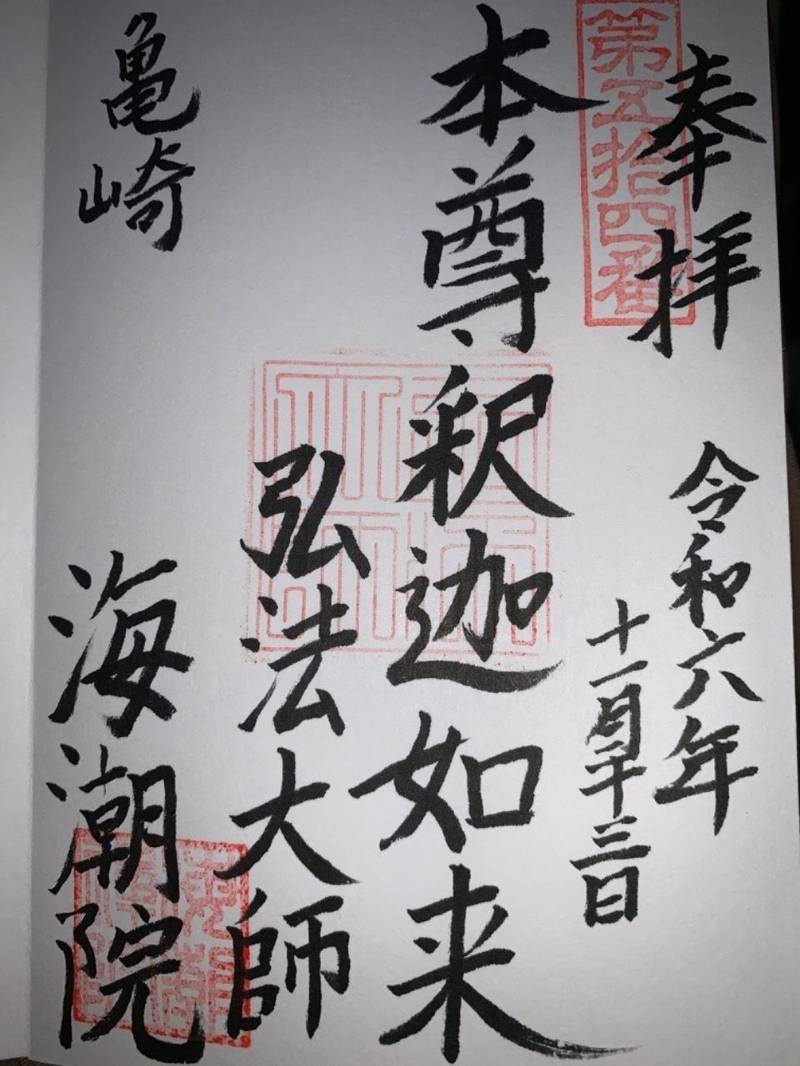 奉拝
第五拾四番
令和六年
十一月二十三日
本尊釈迦如来
弘法大師
亀崎
海潮院